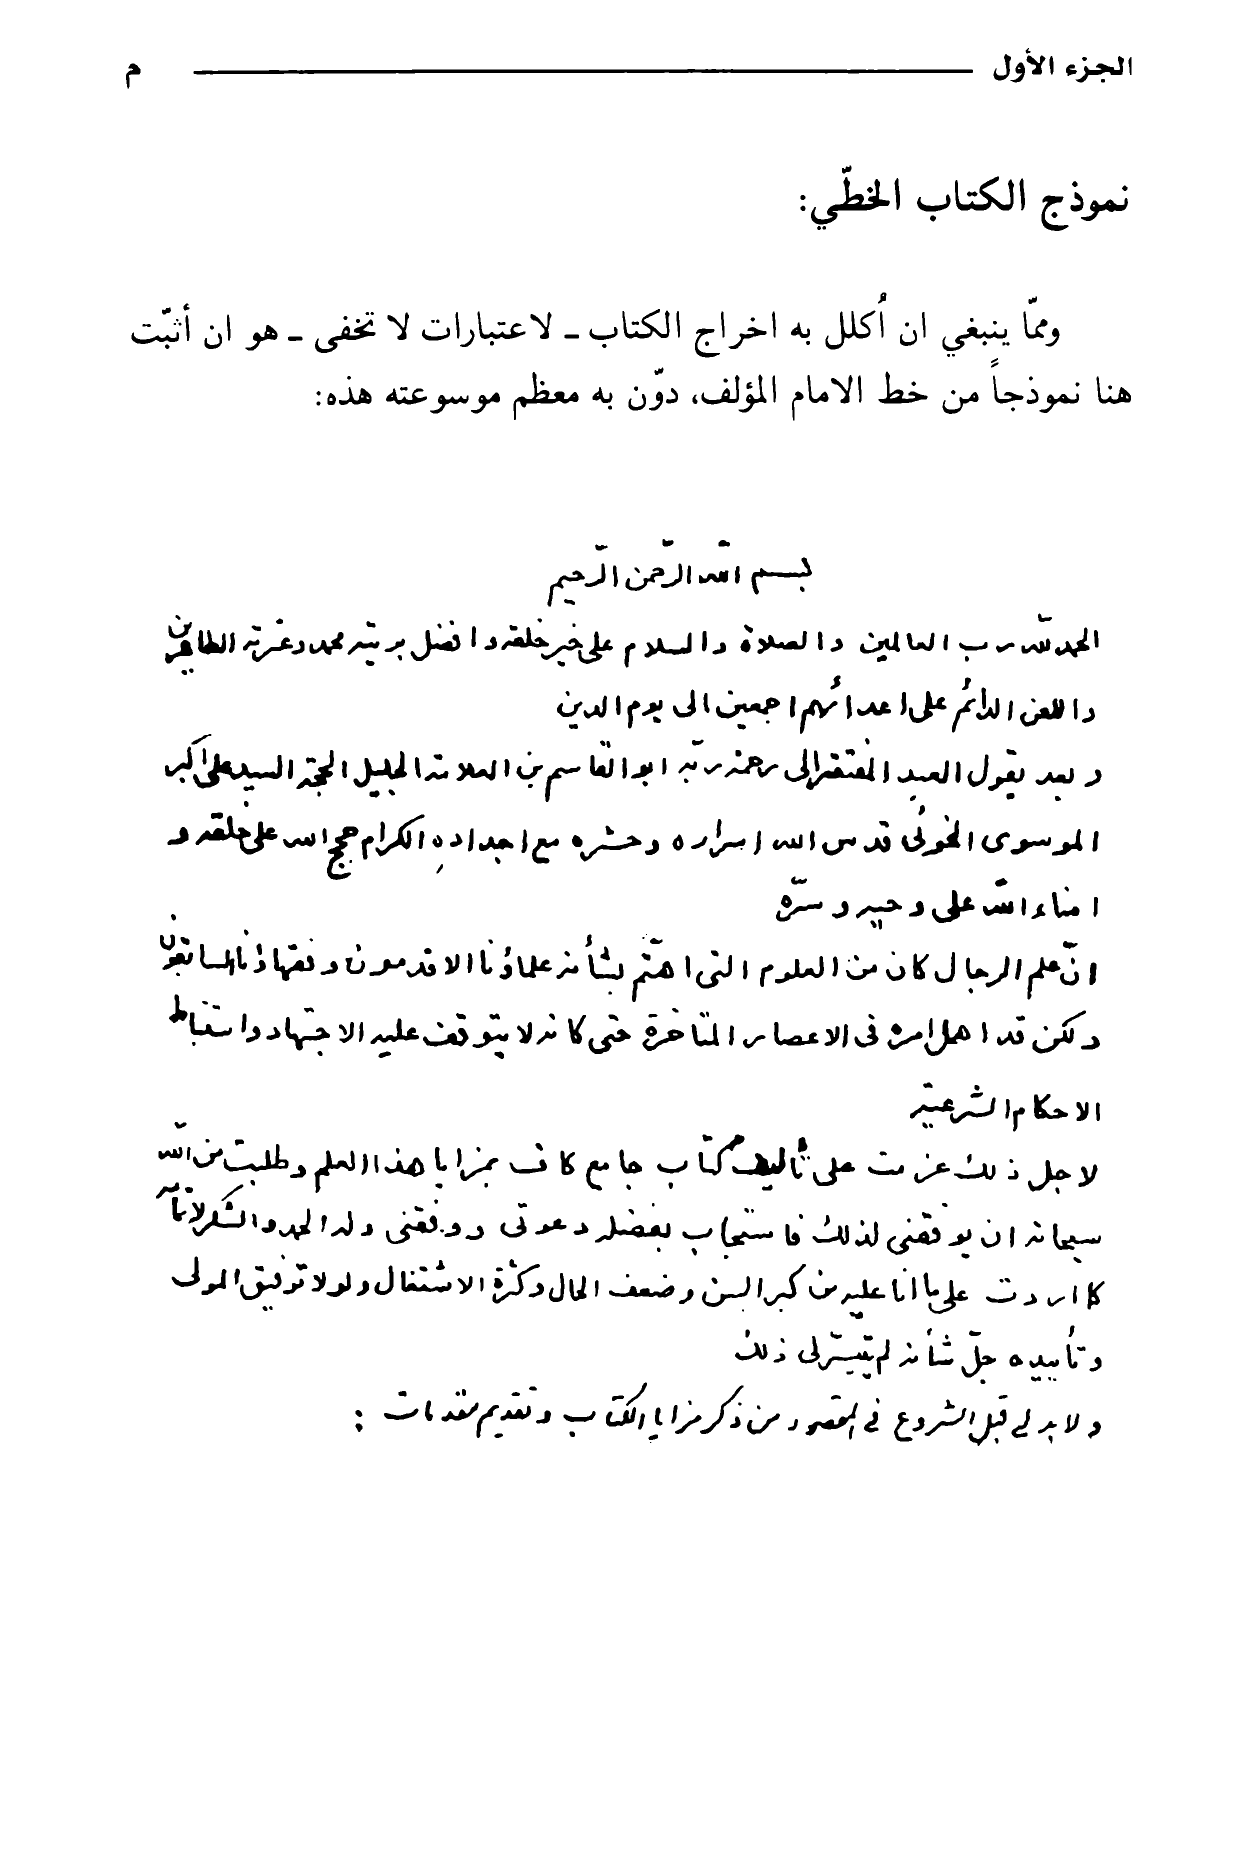 الجزء الأول م
نموذج الكتاب الخطّي:
وممّا ينبغي ان أُكلل به اخراج الكتاب ـ لاعتبارات لا تخفى ـ هو ان أثبّت
هنا نموذجاً من خط الامام المؤلف، دوّن به معظم موسوعته هذه:
بسم الله الرّحمن الرّحيم
الحمد لله رب العالمين والصلاة والسلام على خير خلقه وافضل بريته محمد وعترته الطاهرين
واللعن الدائم على اعدائهم اجمعين الى يوم الدين
وبعد يقول العبد المفتقر الى رحمة ربّه ابو القاسم بن العلامة الجليل الحجة السيد علي اكبر
الموسوى الخوئى قدس الله اسراره وحشره مع اجداده الكرام حجج الله على خلقه و
امناء الله على وحيه وسرّه
انّ علم الرجال كان من العلوم التى اهتمّ بشأنه علماؤنا الاقدمون وفقهاؤنا السابقون
ولكن قد اهمل امره فى الاعصار المتأخرة حتى كانه لا يتوقف عليه الاجتهاد واستنباط
الاحكام الشرعية
لاجل ذلك عزمت على تأليف كتاب جامع كاف بمزايا هذا العلم وطلبت من الله
سبحانه ان يوفقنى لذلك فاستجاب بفضله دعوتى ووفقنى وله الحمد والشكر لاتمامه
كما اردت على ما انا عليه من كبر السن وضعف الحال وكثرة الاشتغال ولو لا توفيق المولى
وتأييده جلّ شأنه لم يتيسّر لى ذلك
ولا بد لي قبل الشروع في المقصود من ذكر مزايا الكتاب وتقديم مقدمات :